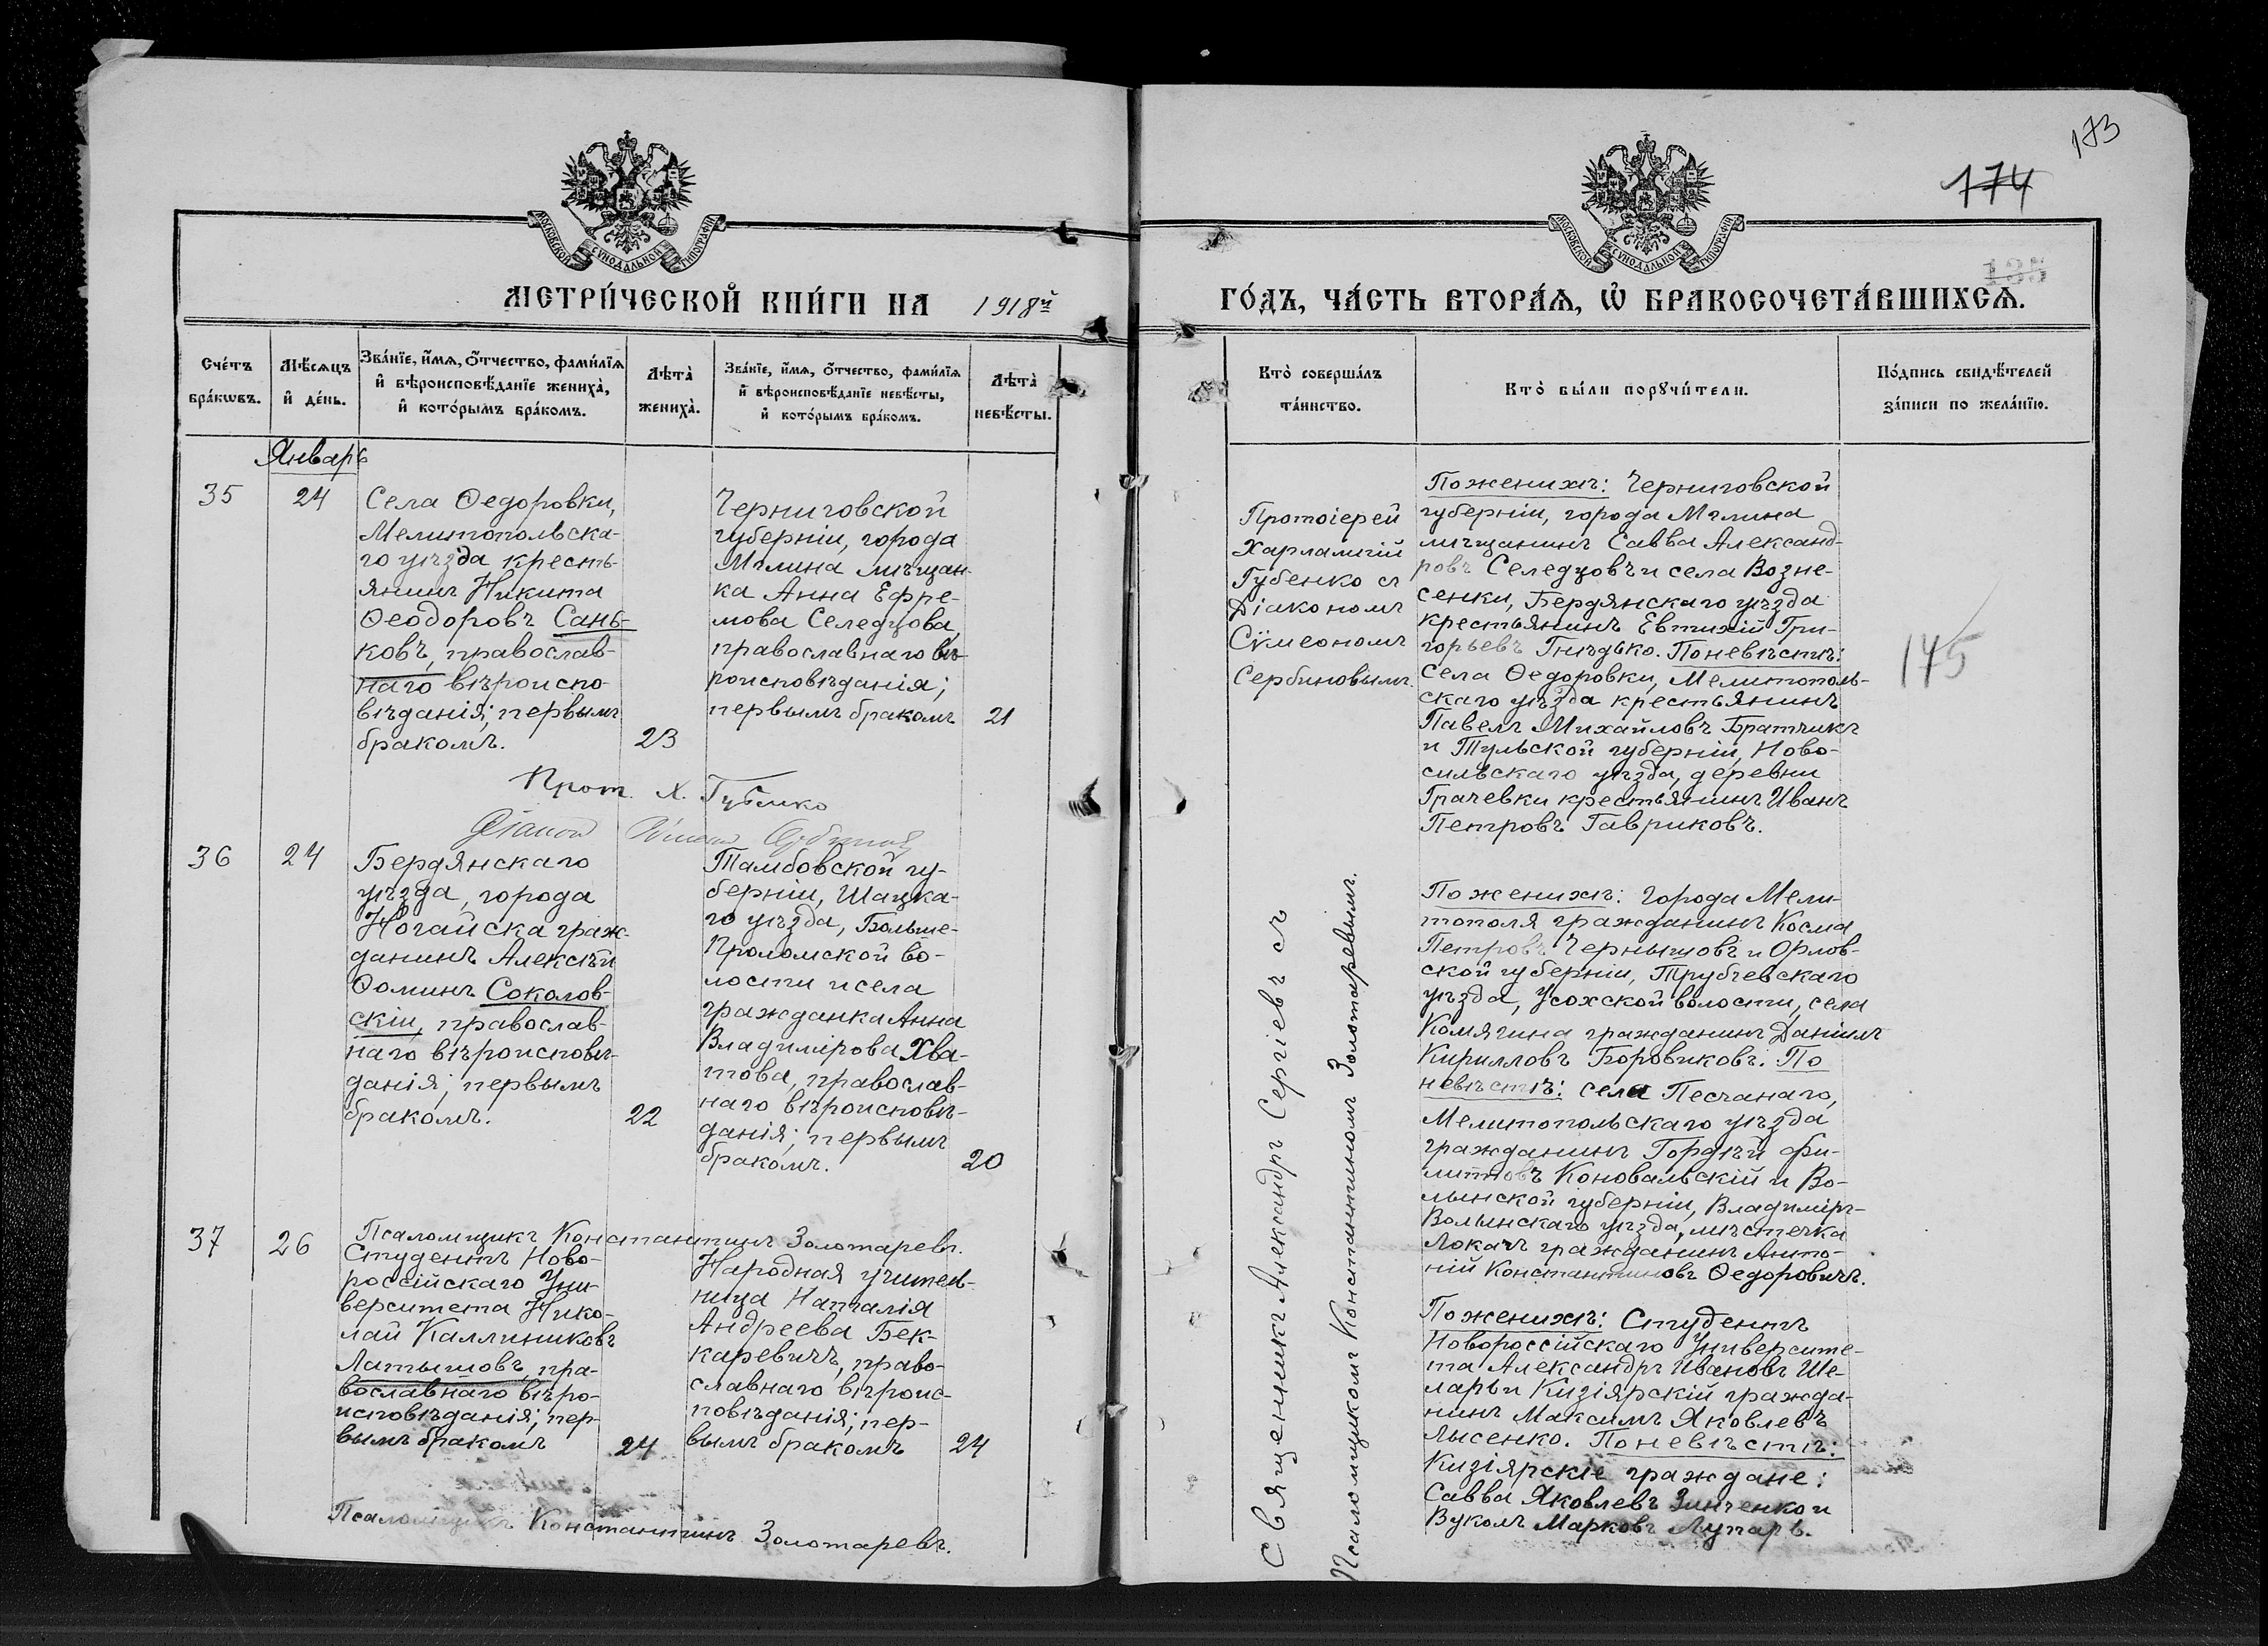 173
174
135
МОСКОВСКОЙ СѴНОДАЛЬНОЙ ТИПОГРАФІИ
МОСКОВСКОЙ СѴНОДАЛЬНОЙ ТИПОГРАФІИ
МЕТРИ́ЧЕСКОЙ КНИ́ГИ НА 1918й
ГО́ДЪ, ЧА́СТЬ ВТОРА́Ѧ, Ѡ҆ БРАКОСОЧЕТА́ВШИХСѦ.
Сче́тъ
бра́кѡвъ.
Мѣ́сѧцъ
и҆ де́нь.
Зва́нїе, и҆́мѧ, ѻ҆́тчество, фами́лїѧ
и҆ вѣроисповѣ́данїе жениха̀,
и҆ кото́рымъ бра́комъ.
Лѣта̀
жениха̀.
Зва́нїе, и҆́мѧ, ѻ҆́тчество, фами́лїѧ
и҆ вѣроисповѣ́данїе невѣ́сты,
и҆ кото́рымъ бра́комъ.
Лѣта̀
невѣ́сты.
Кто̀ соверша́лъ
та́инство.
Кто̀ бы́ли порꙋчи́тели.
По́дпись свидѣ́телей
за́писи по жела́нїю.
Январь
35
24
Села Ѳедоровки,
Мелитопольска-
го уѣзда кресть-
янинъ Никита
Ѳеодоровъ Сань-
ковъ, православ-
наго вѣроиспо-
вѣданія; первымъ
бракомъ.
23
Черниговской
губерніи, города
Мглина мѣщан-
ка Анна Ефре-
мова Селедцова,
православнаго вѣ-
роисповѣданія;
первымъ бракомъ
21
Протоіерей
Харлампій
Губенко съ
Діакономъ
Сѵмеономъ
Сербиновымъ.
По женихѣ: Черниговской
губерніи, города Мглина
мѣщанинъ Савва Александ-
ровъ Селедцовъ и села Возне-
сенки, Бердянскаго уѣзда
крестьянинъ Евтихій Гри-
горьевъ Гнѣдько. По невѣстѣ:
села Ѳедоровки, Мелитополь-
скаго уѣзда крестьянинъ
Павелъ Михайловъ Братчикъ
и Тульской губерніи, Ново-
сильскаго уѣзда, деревни
Грачевки крестьянинъ Иванъ
Петровъ Гавриковъ.
145
Прот. Х. Губенко
36
24
Бердянскаго
уѣзда, города
Ногайска граж-
данинъ Алексѣй
Ѳоминъ Соколов-
скій, православ-
наго вѣроисповѣ-
данія; первымъ
бракомъ.
22
Тамбовской гу-
берніи, Шацка-
го уѣзда, Больше-
Проломской во-
лости и села
гражданка Анна
Владимірова Хва-
това, православ-
наго вѣроисповѣ-
данія; первымъ
бракомъ.
20
Священникъ Александръ Сергіевъ съ
Псаломщикомъ Константиномъ Золотаревымъ.
По женихѣ: города Мели-
тополя гражданинъ Косма
Петровъ Чернышовъ и Орлов-
ской губерніи, Трубчевскаго
уѣзда, Усохской волости, села
Комягина гражданинъ Даніилъ
Кирилловъ Боровиковъ. По
невѣстѣ: села Песчанаго,
Мелитопольскаго уѣзда
гражданинъ Гордѣй Фи-
липповъ Коновальскій и Во-
лынской губерніи, Владиміръ-
Волынскаго уѣзда, мѣстечка
Локачъ гражданинъ Анто-
ній Константиновъ Ѳедоровичъ.
Псаломщикъ Константинъ Золотаревъ.
37
26
Студентъ Ново-
россійскаго Уни-
верситета Нико-
лай Каллиниковъ
Латышовъ, пра-
вославнаго вѣро-
исповѣданія; пер-
вымъ бракомъ
24
Народная учитель-
ница Наталія
Андреева Бек-
каревичъ, право-
славнаго вѣроис-
повѣданія; пер-
вымъ бракомъ
24
По женихѣ: Студентъ
Новороссійскаго Университе-
та Александръ Ивановъ Ше-
ларь и Кизіярскій гражда-
нинъ Максимъ Яковлевъ
Лысенко. По невѣстѣ:
Кизіярскіе граждане:
Савва Яковлевъ Зинченко и
Вуколъ Марковъ Лупарь.
Псаломщикъ Константинъ Золотаревъ.